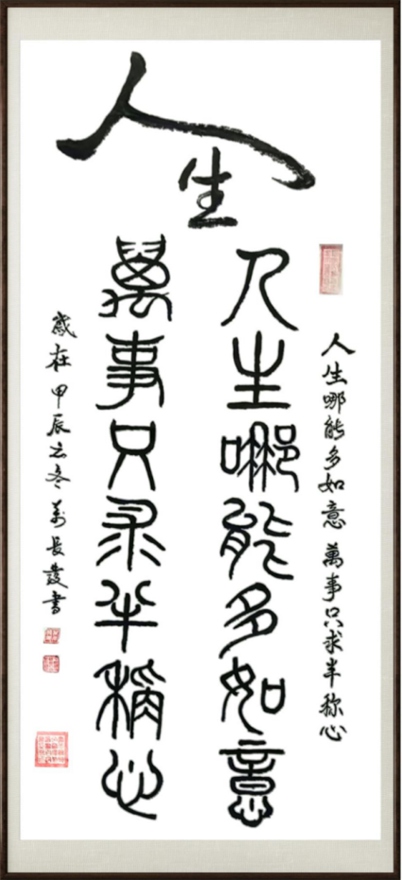 人生
人生哪能多如意 萬事只求半称心
人生哪能多如意
萬事只求半稱心
歲在甲辰之冬 萬長發書